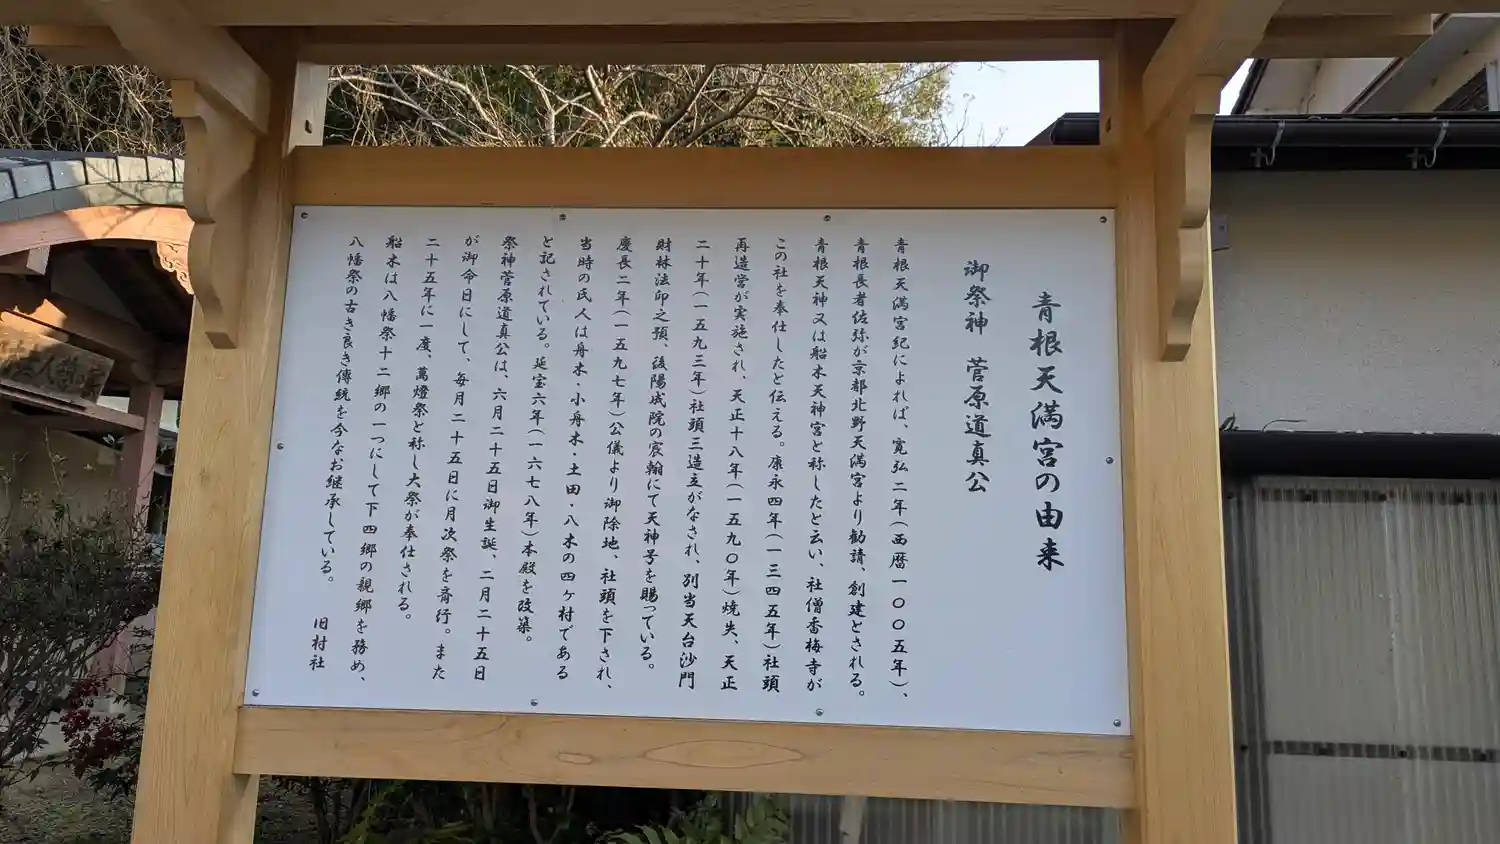 青根天満宮の由来
御祭神　菅原道真公
青根天満宮紀によれば、寛弘二年（西暦一〇〇五年）、
青根長者佐弥が京都北野天満宮より勧請、創建とされる。
青根天神又は船木天神宮と称したと云い、社僧香梅寺が
この社を奉仕したと伝える。康永四年（一三四五年）社頭
再造営が実施され、天正十八年（一五九〇年）焼失、天正
二十年（一五九三年）社頭三造立がなされ、別当天台沙門
財林法印之預、後陽成院の宸翰にて天神号を賜っている。
慶長二年（一五九七年）公儀より御除地、社頭を下され、
当時の氏人は舟木・小舟木・土田・八木の四ヶ村である
と記されている。延宝六年（一六七八年）本殿を改築。
祭神菅原道真公は、六月二十五日御生誕、二月二十五日
が御命日にして、毎月二十五日に月次祭を斎行。また
二十五年に一度、萬燈祭と称し大祭が奉仕される。
船木は八幡祭十二郷の一つにして下四郷の親郷を務め、
八幡祭の古き良き傳統を今なお継承している。
旧村社